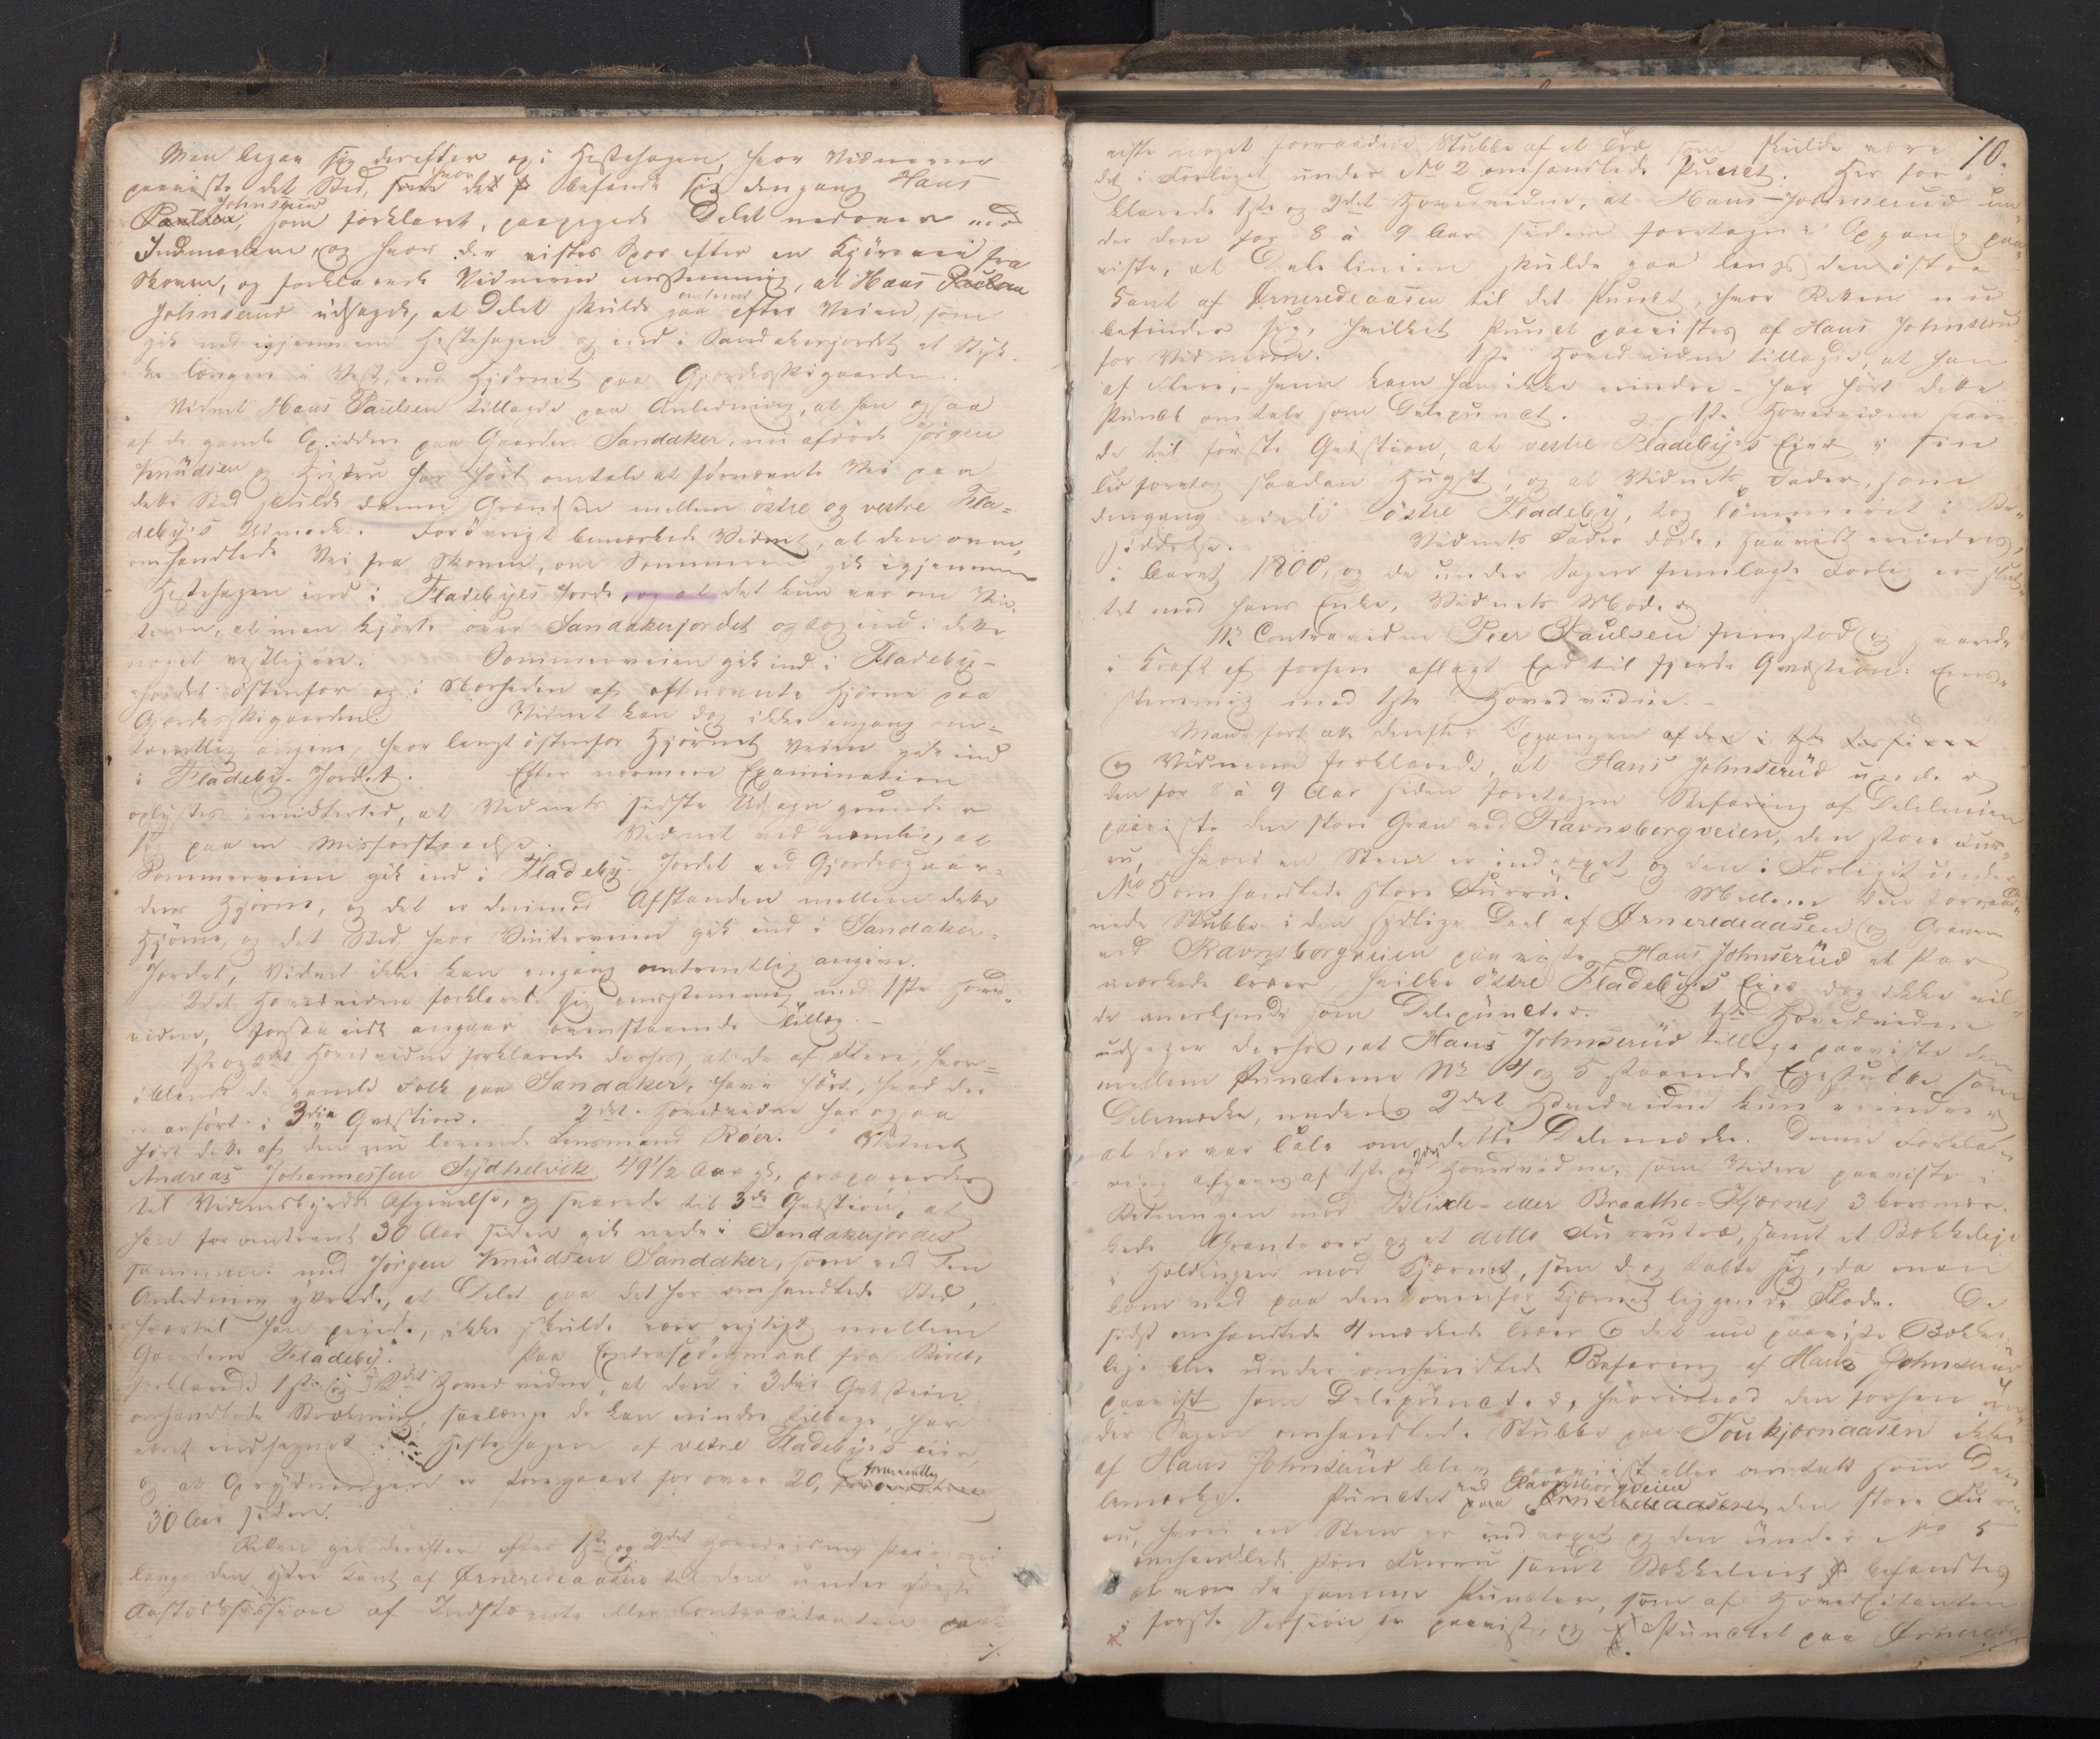 Man begav sig derefter op i Hestehagen, hvor Vidnerne
paaviste det Sted, hvor det befandt sig dengang Hans
Johnserud, som forklaret, paapegede Delet nedover mod
Indmarken, og hvor der vistes Spor efter en Kjørevei fra
Skoven, og forklarede Vidnerne eensstemmig, at Hans Paulsen
Johnserud udsagde, at Delet skulde gaa omtrent efter Veien, som
gik ned igjennem Hestehagen og ind i Sandakerjordet et Styk-
ke længere i Vest, end Hjørnet paa Gjerdesskigaarden.
Vidnet Hans Paulsen tillagde paa Anledning, at han ogsaa
af de gamle Opsiddere paa Gaarden Sandaker, nu afdøde Jørgen
Knudsen og Hustru har hørt omtale at førnævnte Vei paa
dette Sted skulde danne Grændsen mellem östre og vestre Fla-
deby's Udmark. Forövrigt bemærkede Vidnet, at den oven-
omhandlede Vei fra Skoven, om Sommeren gik igjennem
Hestehagen ind i Fladebyes Jorde, og at det kun var om Vin-
teren, at man kjørte over Sandakerjordet og tog ind i dette
noget vestligere. Sommerveien gik ind i Fladeby-
jordet östenfor og i Nærheden af oftnævnte Hjørne paa
Gjerdesskigaarden. Vidnet kan dog ikke engang om-
trentlig angive, hvor langt östenfor Hjørnet Veien gik ind
i Fladeby-Jordet. Efter nærmere Examination
oplystes imidlertid, at Vidnets sidste Udsagn grunder
sig paa en Misforstaaelse. Vidnet ved nemlig, at
Sommerveien gik ind i Fladeby-Jordet ved Gjerdesgaar-
dens Hjørne, og det er derimod Afstanden mellem dette
Hjørne, og det Sted hvor Vinterveien gik ind i Sandaker-
Jordet, Vidnet ikke kan engang omtrentlig angive.
2det Hovedvidne forklarede sig eensstemmig med 1ste Hoved-
vidne, forsaavidt angaar ovenstaaende Tillæg.
1ste og 2det Hovedvidne forklarede derhos, at de af Flere, hvor-
iblandt de gamle Folk paa Sandaker, have hørt, hvad der
er anført i 3die Qvæstion. 2det Hovedvidne har ogsaa
hørt dette af den nu levende Lensmand Röer. Vidnet
Andreas Johannessen Sydhelvik, 49 1/2 Aar gl., præpareredes
til Vidnesbyrds Afgivelse, og svarede til 3die Qvæstion, at
han for omtrent 30 Aar siden gik nede i Sandakerjordet
sammen med Jørgen Knudsen Sandaker, som ved den
Anledning yttrede, at Delet paa det her omhandlede Sted,
hvortil han pegede, ikke skulde være rigtigt mellem
Gaardene Fladeby. Paa Contraspörgsmaal fra
forklarede 1ste og 2det Hovedvidne, at den i 3die Qvæstion
omhandlede Strækning, saalænge de kan mindes tilbage, har
været indhegnet Hestehagen af vestre Fladebyes Eier,
og at Oprydningen er foregaaet for over 20, formeentlig
30 Aar siden.
Retten gik derefter efter 1ste og 2det Hovedvidnes Paaviisning
langs den östre Kant af Ørneredeaasen til den under første
Aastedssession af Indstævnte eller Contracitanten paa-
10.
viste noget forraadnede Stubbe af et Træ, som skulde være
det i Forliget under No 2 omhandlede Punct. Her for-
klarede 1ste og 2det Hovedvidne, at Hans Johnserud un-
der den for 8 à 9 Aar siden foretagne Opgang paa-
viste, at Delelinien skulde gaa langs den östre
Kant af Ørneredeaasen til det Punct, hvor Retten nu
befinder sig, hvilket Punct paavistes af Hans Johnserud
for Vidnerne. 1ste Hovedvidne tillagde, at han
af Flere, – hvem kan han ikke erindre – har hört dette
Punct omtale som Delepunct. 1ste Hovedvidne svare-
de til förste Qvæstion, at vestre Fladeby's Eier i sin
Tid foretog saadan Hugst, og at Vidnets Fader, som
dengang eiede östre Fladeby, tog Tömmeret i Be-
siddelse. Vidnets Fader döde, saavidt erindres,
i Aaret 1800, og de under Sagen fremlagte Forlig er slut-
tet med hans Enke, Vidnets Moder.
Contravidne Peer Paulsen fremstod og svarede
i Kraft af forhen aflagt Eed til fjerde Qvæstion: Eens-
stemmig med 1ste Hovedvidne. –
Man fortsatte derefter Opgangen
og Vidnerne forklarede, at Hans Johnserud under
den for 8 à 9 Aar siden foretagne Befaring af Delelinien
paaviste den store Gran ved Ravnsborgveien, den store Fur-
ru, hvori en Steen er indvoxet og den i Forliget under
No 5 omhandlede store Furru. Mellem den forraad-
nede Stubbe i den sydlige Deel af Ørneredeaasen og Granen
ved Ravnsborgveien paaviste Hans Johnserud et Par
mærkede Træer, hvilke östre Fladeby's Eier dog ikke vil-
de anerkjende som Delepuncter. 1ste Hovedvidne
udsiger derhos, at Hans Johnserud tillige paaviste den
mellem Puncterne No 4 og 5 staaende Egestubbe som
Delemærke, medens 2det Hovedvidne kun erindrer
at der var Tale om dette Delemærke. Denne Forkla-
ring afgaves af 1ste og 2det Hovedvidne, som videre paaviste i
Retningen mod Blixle- eller Braathe-Kjernet 3 korsmær-
kede Grantræer og et ditto Furrutræ, samt et Bækkeleje
i Heldingen mod Kjernet, som dog tabte sig, da man
kom ned paa den ovenfor Kjernet liggende Flade. De
sidst omhandlede 4 mærkede Træer og det nu paaviste Bække-
leje blev under omhandlede Befaring af Hans Johnserud
paavist som Delepuncter, hvorimod den forhen un-
der Sagen omhandlede Stubbe paa Toukjernaasen ikke
af Hans Johnserud blev paavist eller omtalt som De-
lemærke. Punctet ved Ravnsborgveien, den store Fur-
ru, hvori en Steen er indvoxet og den under No 5
omhandlede store Furru samt Bækkeleiet befandtes
at være de samme Puncter, som af Hovedcitanten
i förste Session er paavist, og Punctet paa Ørnerede